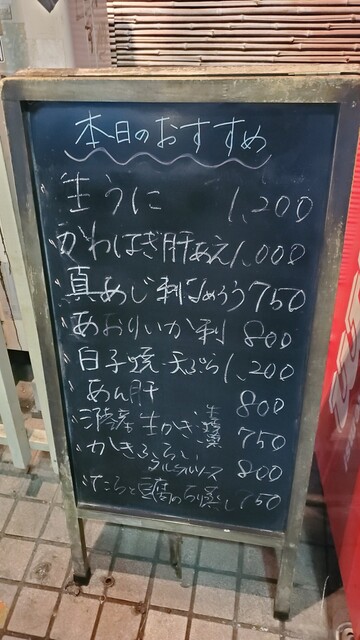 本日のおすすめ
生うに 1,200
かわはぎ肝あえ 1,000
真あじ 刺 なめろう 750
あおりいか刺 800
白子焼・天ぷら 1,200
あん肝 800
三陸産 生かき 生 焼 750
かきふらい タルタルソース 800
たらと豆腐のちり蒸し 750